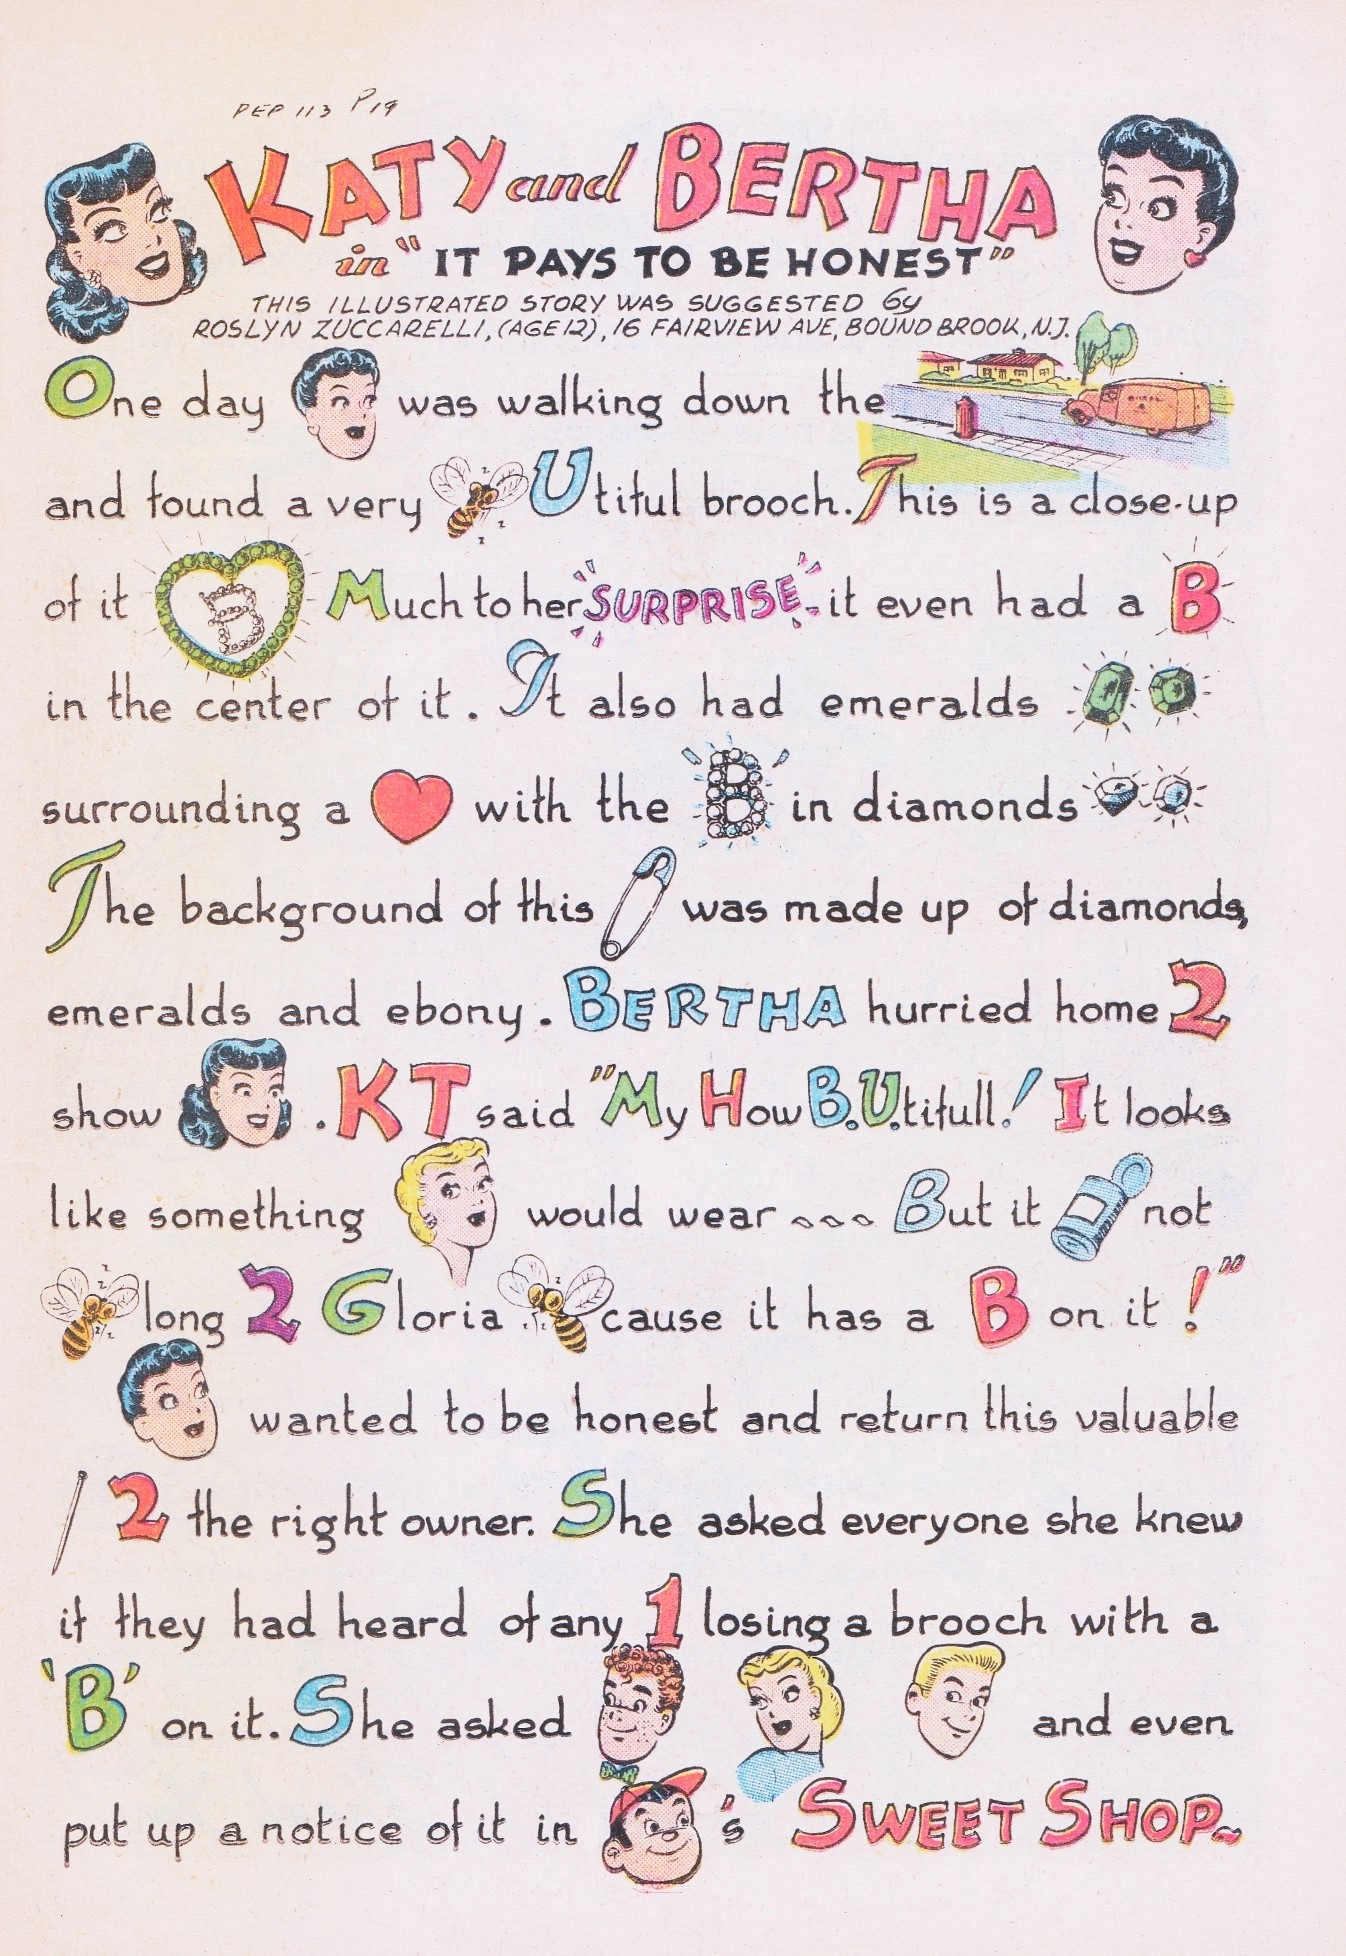 PEP 113 P19
KATY and BERTHA
in "IT PAYS TO BE HONEST"
THIS ILLUSTRATED STORY WAS SUGGESTED By
ROSLYN ZUCCARELLI, (AGE 12), 16 FAIRVIEW AVE, BOUND BROOK, N.J.
One day was walking down the
and found a very Utiful brooch. This is a close-up
of it B Much to her "SURPRISE"- it even had a B
in the center of it. It also had emeralds
surrounding a with the B in diamonds
The background of this was made up of diamonds,
emeralds and ebony. BERTHA hurried home 2
show . KT said "My How B.U.tifull! It looks
like something would wear ... But it not
long 2 Gloria cause it has a B on it!"
wanted to be honest and return this valuable
2 the right owner. She asked everyone she knew
if they had heard of any 1 losing a brooch with a
'B' on it. She asked and even
put up a notice of it in 's SWEET SHOP~